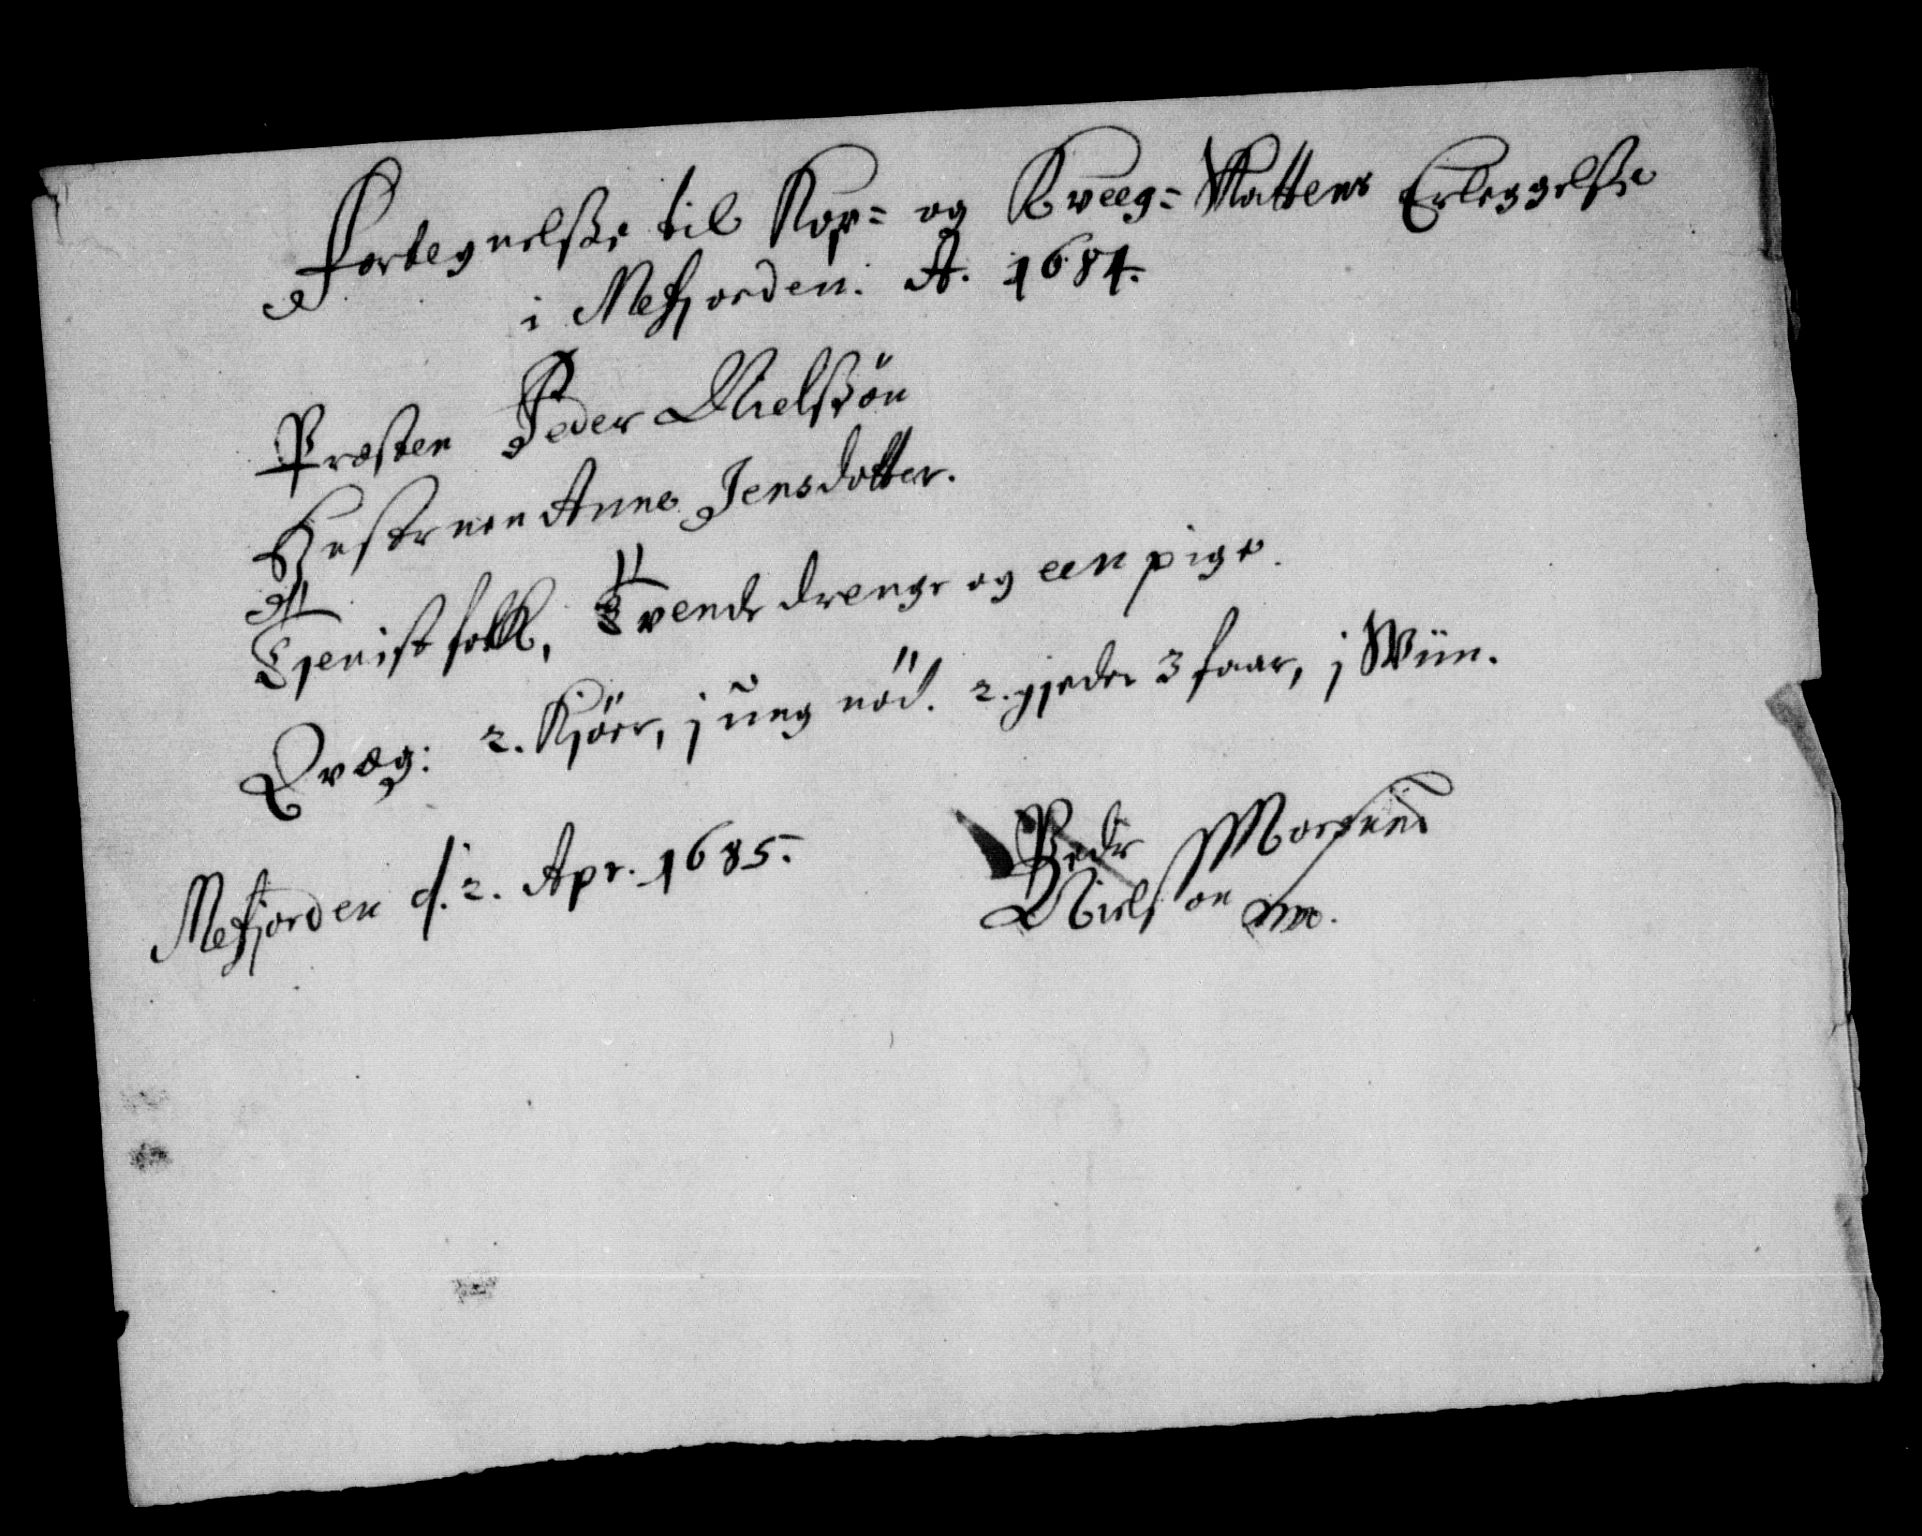 Fortegnelsse til Kop= og Kveeg= Skattens Erleggelsse
i Mefjorden. A. 1684.
Præsten Peder Nielssön
Hustruen Anne Jensdotter.
Tjenistfolk, Tvende drenge og een pige.
Qvæg: 2. Kjöer, j ung nöd. 2. gjeder 3 faar, j Wiin.
Mefjorden d. 2. Apr. 1685.
Peder
Nielsson mp.